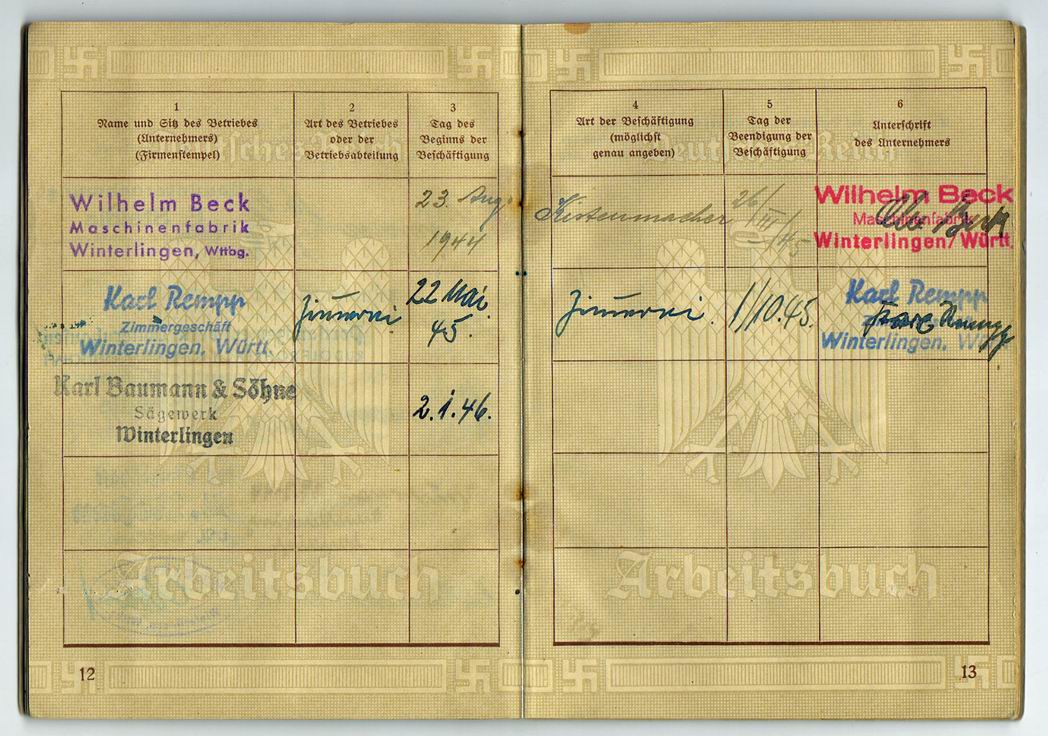 1
Name und Sitz des Betriebes
(Unternehmers)
(Firmenstempel)
2
Art des Betriebes
oder der
Betriebsabteilung
3
Tag des
Beginns der
Beschäftigung
Wilhelm Beck
Maschinenfabrik
Winterlingen, Wttbg.
23. Aug.
1944
Karl Rempp
Zimmergeschäft
Winterlingen, Württ.
Zimmerei
22 Mai
45.
Karl Baumann & Söhne
Sägewerk
Winterlingen
2.1.46.
Arbeitsbuch
12
4
Art der Beschäftigung
(möglichst
genau angeben)
5
Tag der
Beendigung der
Beschäftigung
6
Unterschrift
des Unternehmers
Deutsches Reich
Kistenmacher
26/
III/
45
Wilhelm Beck
Maschinenfabrik
Winterlingen/Württ.
Zimmerei
1/10.45.
Karl Rempp
Winterlingen,
Arbeitsbuch
13